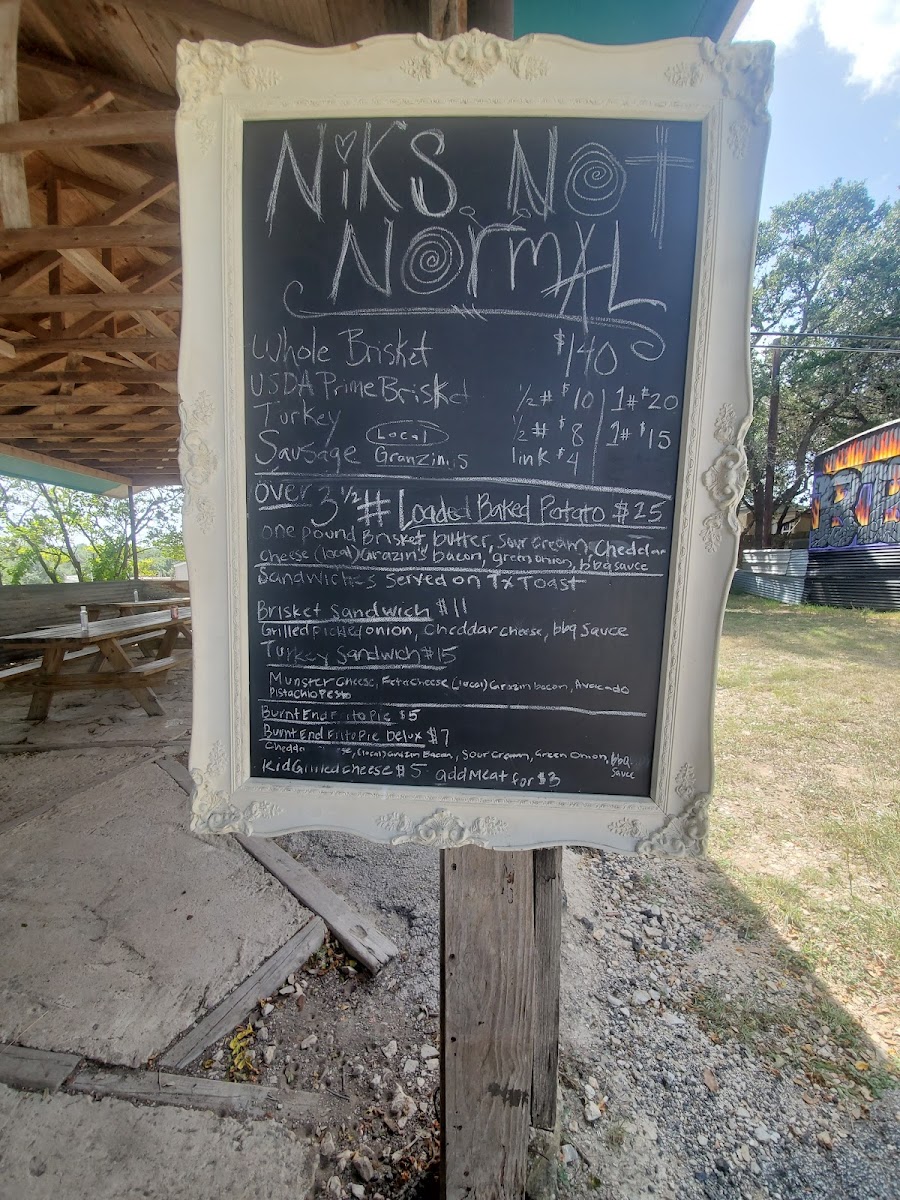 NiKS NOT
NORMAL
Whole Brisket $140
USDA Prime Brisket 1/2# $10 | 1# $20
Turkey 1/2# $8 | 1# $15
Sausage Local Granzin's link $4
over 3 1/2 # Loaded Baked Potato $25
one pound Brisket, butter, sour cream, Cheddar
cheese (local) Grazin's bacon, green onion, bbq sauce
Sandwiches Served on Tx Toast
Brisket Sandwich $11
Grilled pickled onion, Cheddar cheese, bbq Sauce
Turkey Sandwich $15
Munster Cheese, Feta cheese (local) Grazin bacon, Avocado
Pistachio Pesto
Burnt End Frito Pie $5
Burnt End Frito Pie Delux $7
(local) Grazin Bacon, Sour Cream, Green Onion, bbq
Sauce
Kid Grilled cheese $5 add Meat for $3